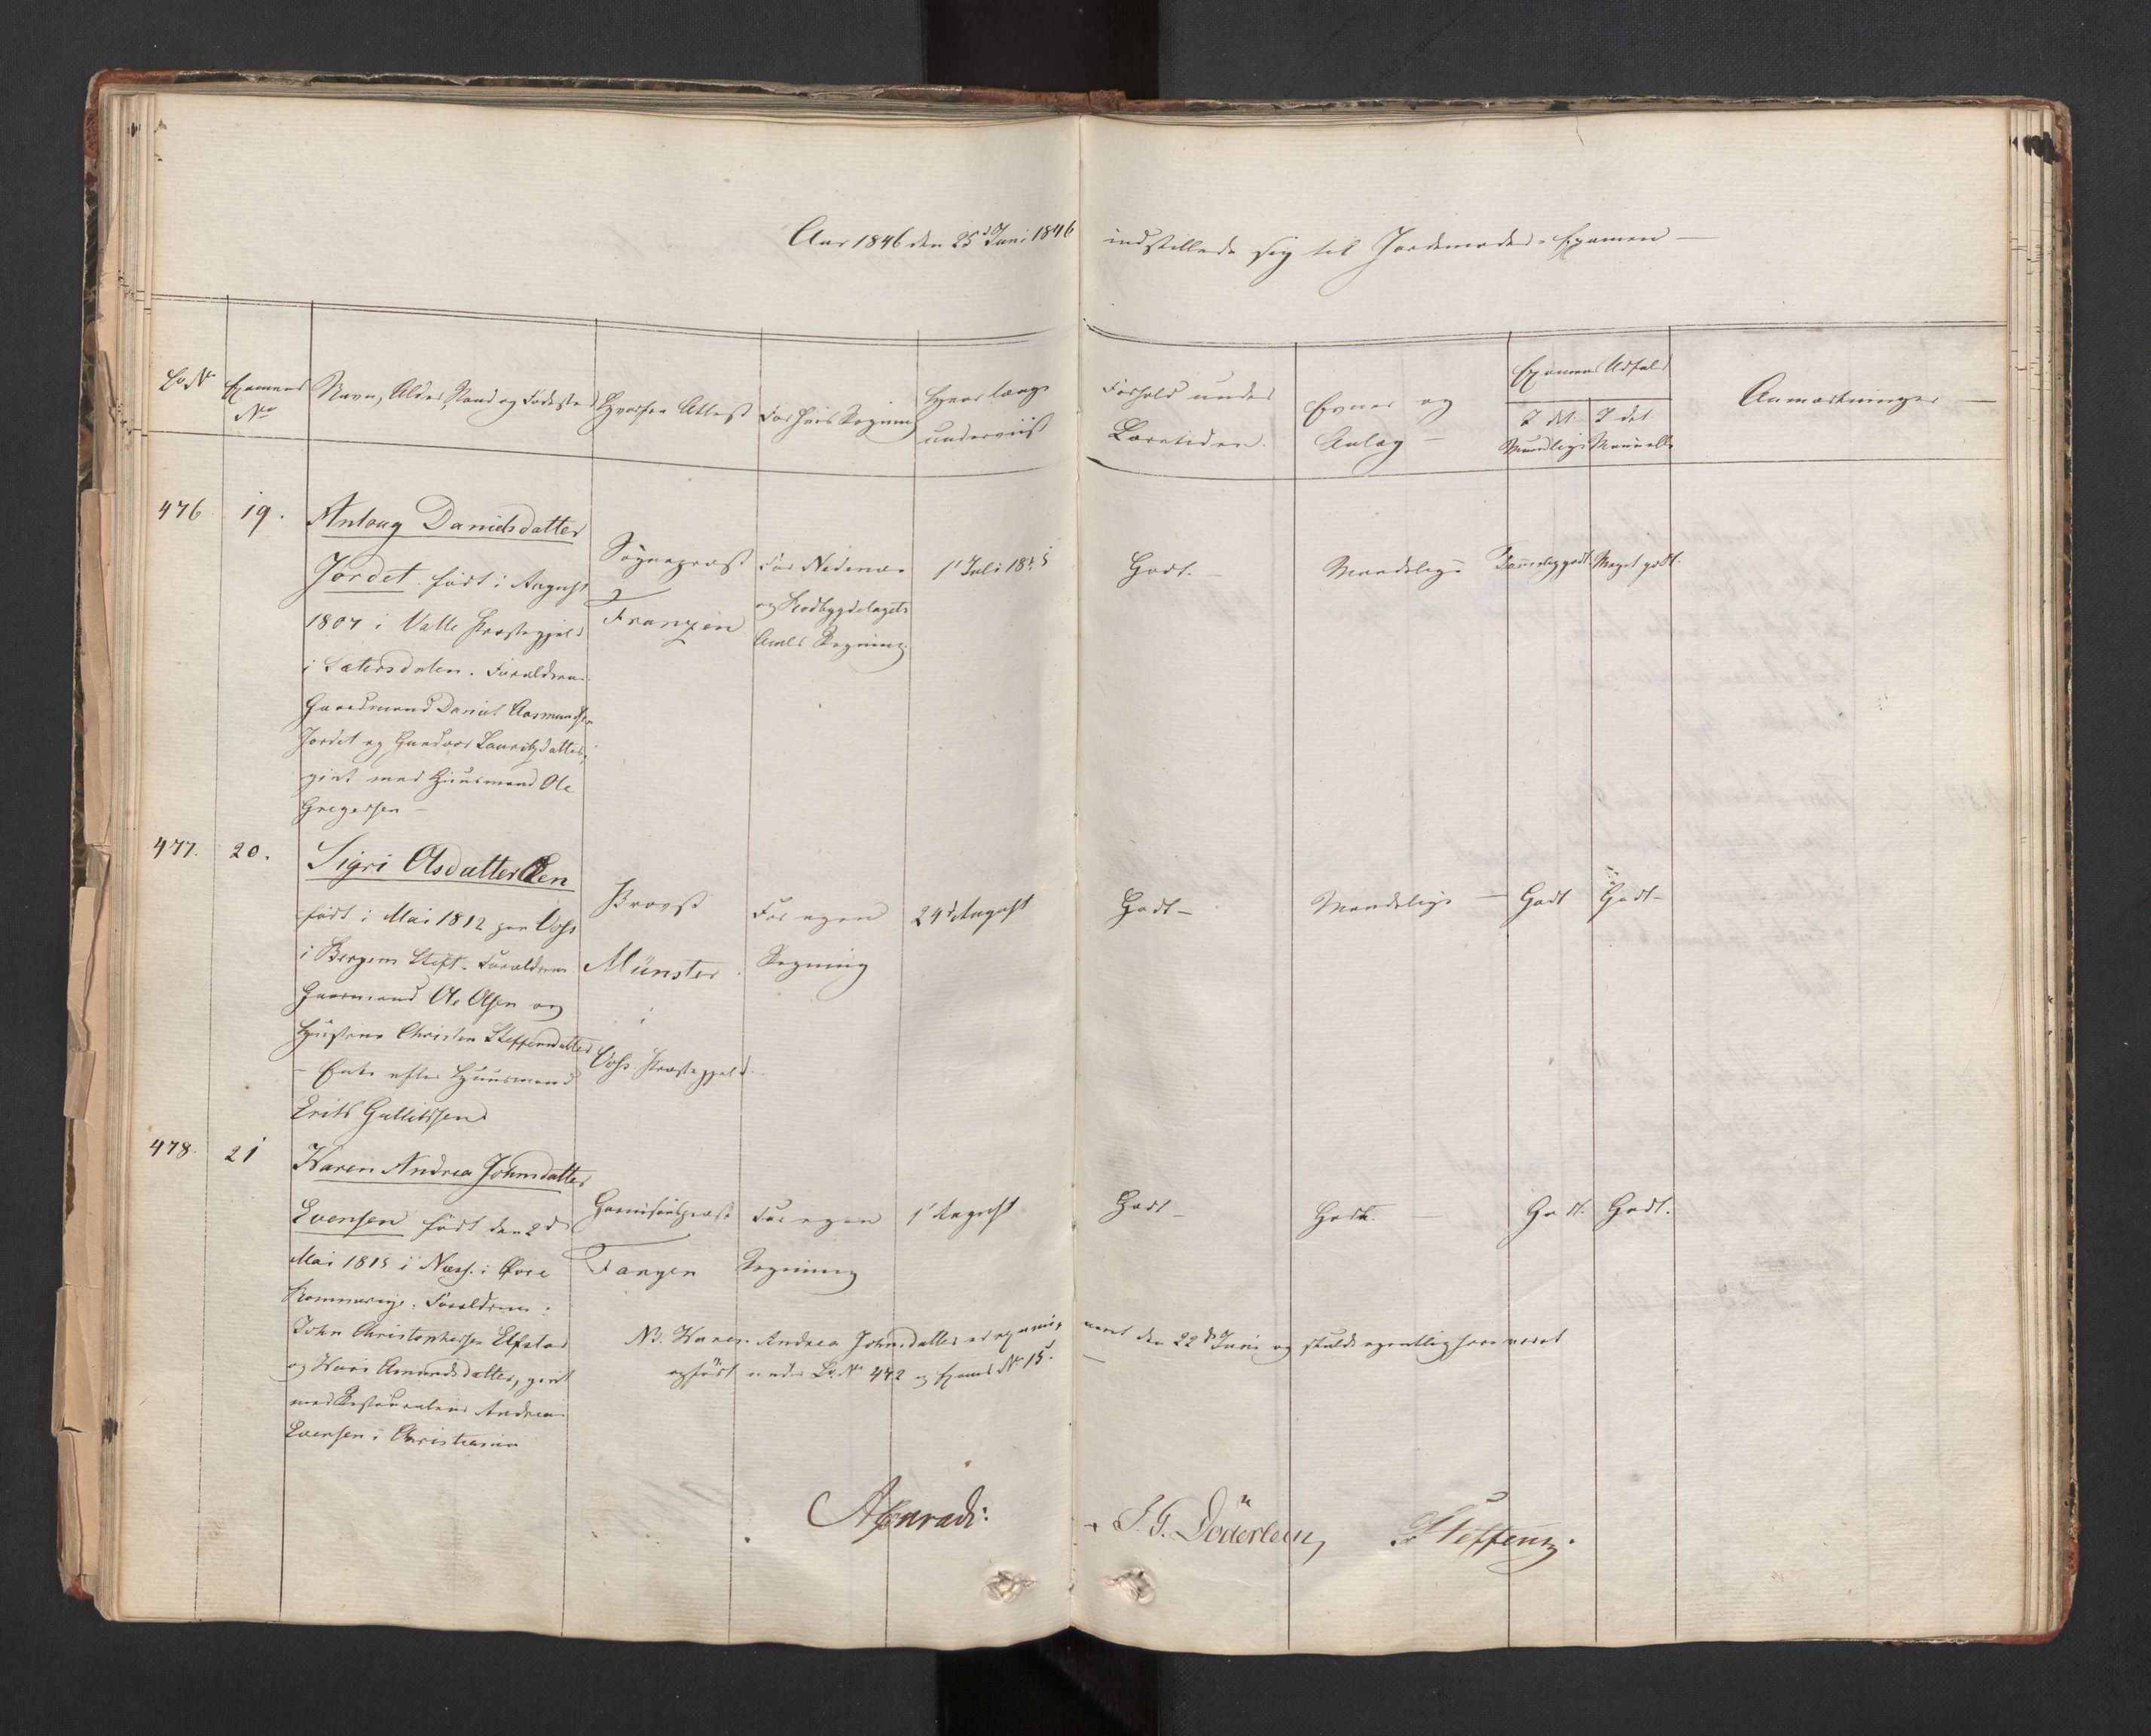 Aar 1846 den 25de Juni 1846 indstillede sig til Jordemoder-Examen —
Lb. No Examens No Navn, Alder, Stand og Fødested Hvorfra Attest For hvis Regning Hvor længe underviist Forhold under Læretiden. Evner og Anlæg — Examens Udfald
I det Mundtlige I det Manuelle
Anmærkninger —
476. 19. Antoug Danielsdatter
Jordet født i August
1807 i Valle Præstegjeld
i Sætersdalen. Forældrene
Gaardmand Daniel Aasmundsen
Jordet og Gundvor Lauritzdatter,
givt med Huusmand Ole
Gregersen —
Sognepræst
Franzen
For Nedenæs
og Raabygdelagets
Amts Regning.
1' Juli 1845
Godt. —
Maadelige
Temmelig godt. Meget godt.
477. 20. Sigri Olsdatter Øen
født i Mai 1812 paa Voss
i Bergens Stift. Forældrene
Gaarmand Ole Olsen og
Hustrue Christen Steffensdatter
– Enke efter Huusmand
Erik Gullikssen
Provst
Münster
i
Voss Præstegjeld.
For egen
Regning
24de August
Godt –
Maadelige —
Godt Godt –
478. 21 Karen Andrea Johnsdatter
Evensen født den 2de
Mai 1815 i Næss i Øvre
Rommerige. Forældrene:
John Christophersen Elfstad
og Kari Amundsdatter, givt
med Restaurateur Andreas
Evensen i Christiania
Garnisonspræst
Fangen
For egen
Regning
1' August
Godt –
Godt.
Godt. Godt.
NB. Karen Andrea Johnsdatter er examineret den 22de Juni og skulde egentlig have været
opført under Lb. No 472 og Exam. No 15.
AConradi:
J. G. Döderlein, F Steffens.